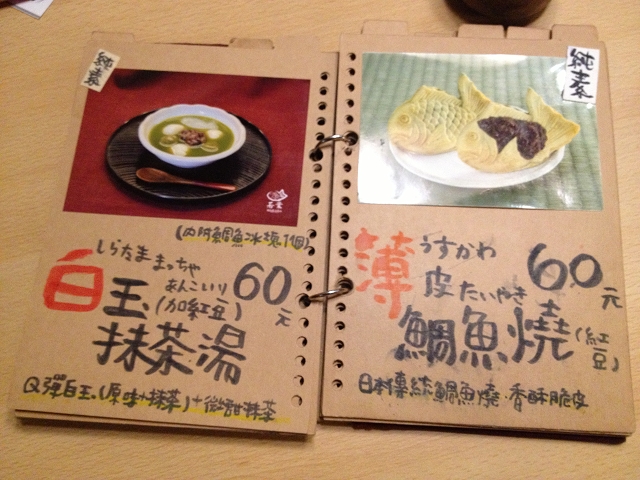 純素
(內附鯛魚冰塊1個)
しらたま まっちゃ
あんこいり
白玉(加紅豆)
60元
抹茶湯
Q彈白玉(原味+抹茶)+微甜抹茶
純素
うすかわ
薄皮たいやき
60元
鯛魚燒(紅豆)
日本傳統鯛魚燒、香酥脆皮